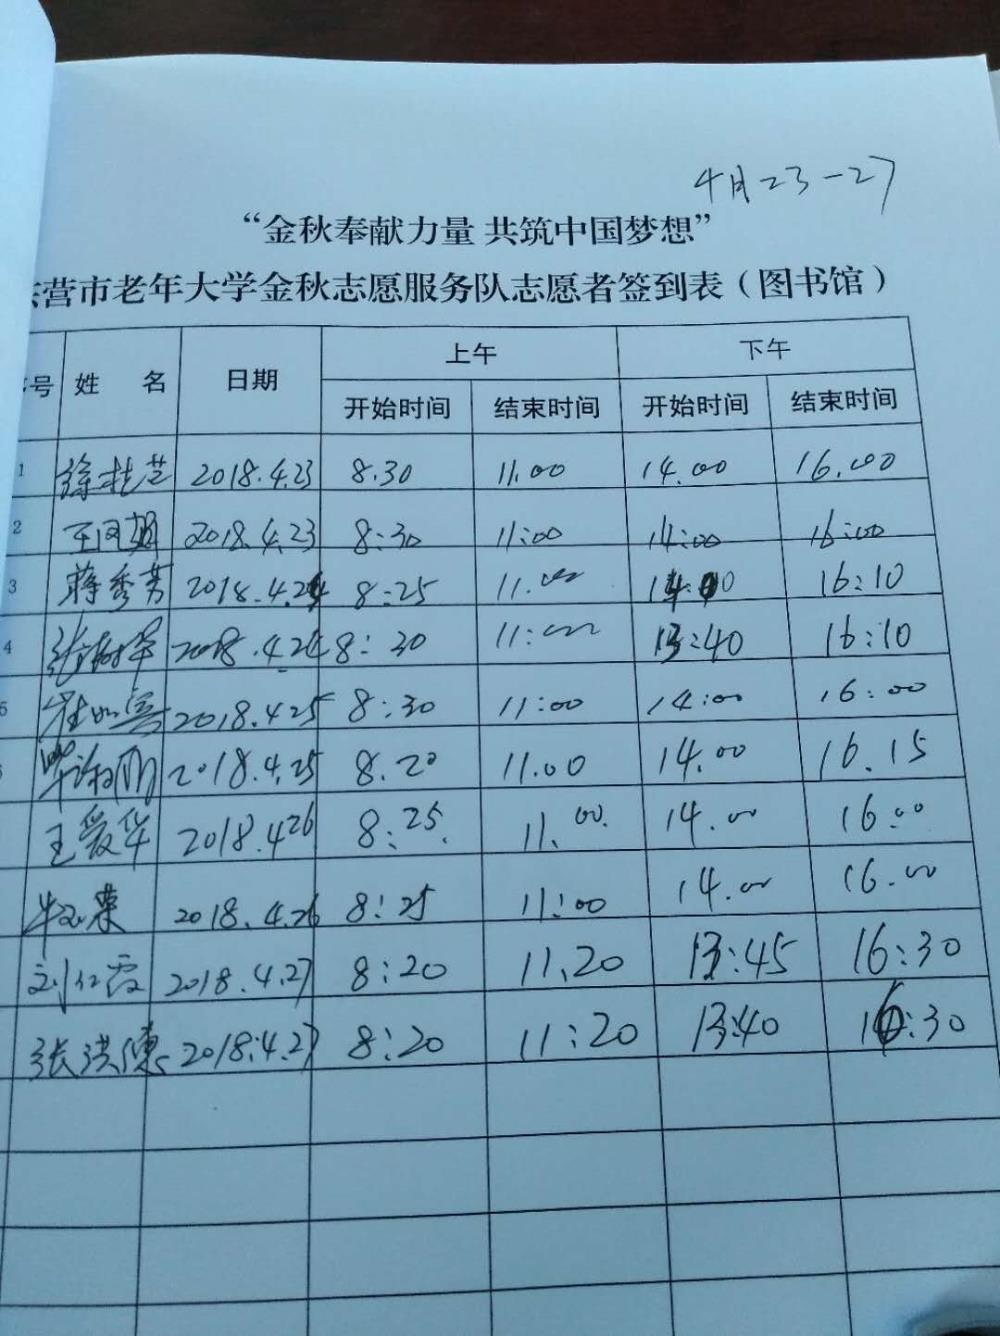 4月23-27
“金秋奉献力量 共筑中国梦想”
营市老年大学金秋志愿服务队志愿者签到表（图书馆）
号 姓 名 日期 上午 下午
开始时间 结束时间 开始时间 结束时间
1 徐桂芝 2018.4.23 8.30 11.00 14.00 16.00
2 2018.4.23 8:30 11:00 14:00 16:00
3 蒋秀芳 2018.4.24 8:25 11.00 14:00 16:10
4 2018.4.24 8:30 11:00 13:40 16:10
5 2018.4.25 8:30 11:00 14:00 16:00
2018.4.25 8.20 11.00 14.00 16.15
王爱华 2018.4.26 8:25. 11.00. 14.00 16.00
2018.4.26 8:25 11:00 14.00 16.00
刘仁霞 2018.4.27 8:20 11.20 13:45 16:30
张洪德 2018.4.27 8:20 11:20 13:40 16:30